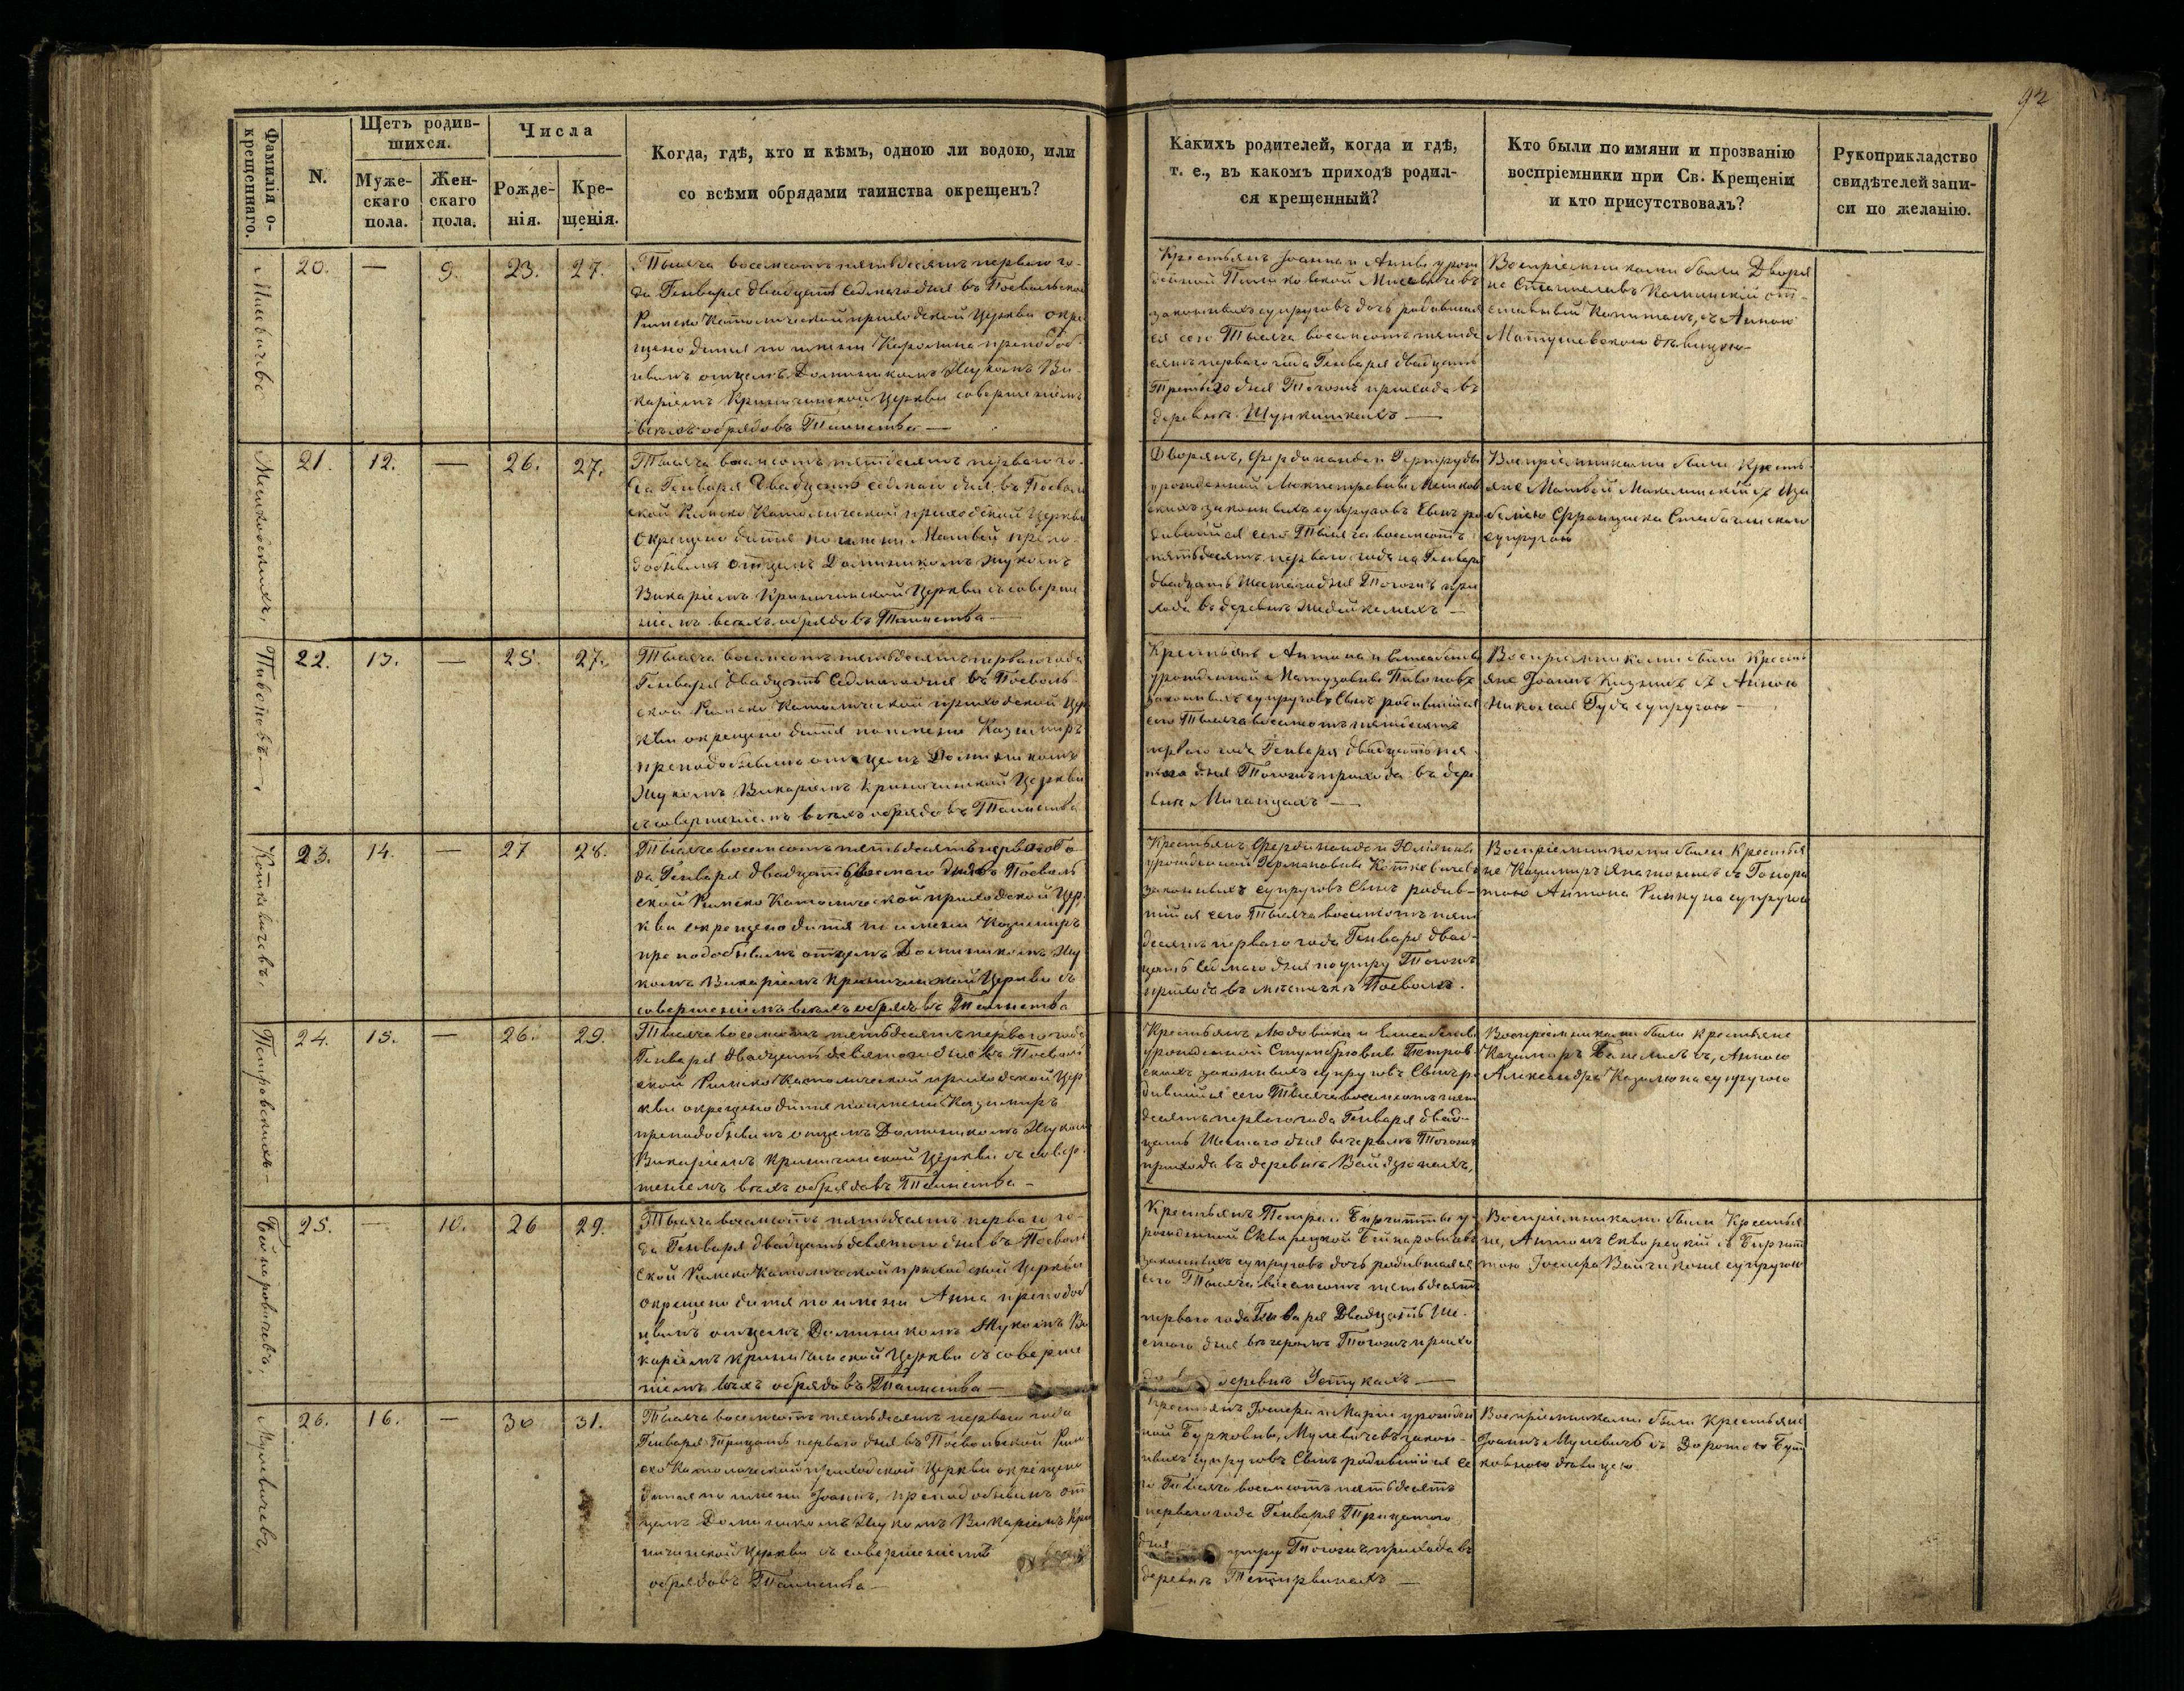 92
Фамилія о-
крещеннаго.
N.
Щетъ родив-
шихся.
Муже-
скаго
пола.
Жен-
скаго
пола.
Числа
Рожде-
нія.
Кре-
щенія.
Когда, гдѣ, кто и кѣмъ, одною ли водою, или
со всѣми обрядами таинства окрещенъ?
Какихъ родителей, когда и гдѣ,
т. е., въ какомъ приходѣ родил-
ся крещенный?
Кто были по имяни и прозванію
воспріемники при Св. Крещеніи
и кто присутствовалъ?
Рукоприкладство
свидѣтелей запи-
си по желанію.
20. — 9. 23. 27.
Тысяча восемсотъ пятьдесятъ перваго го-
да Генваря двадцать седмаго дня въ Посвольской
Римско Католической приходской Церкви окре-
щено дитя по имени Каролина преподоб-
нымъ отцемъ Домиником Жукомъ Ви-
каріемъ Криничинской Церкви совершеніемъ
всехъ обрядовъ Таинства —
Крестьянъ Іоанна и Анны урож
законныхъ супруговъ дочь родившая
ся сего Тысяча восемсотъ пятьде
сятъ перваго года Генваря двадцать
Третьяго дня Тогожъ прихода въ
деревнѣ
Воспріемниками были Дворя
не Станиславъ Каминскій от-
ставный Капитанъ, съ Анною
Матушевскою дѣвицею
Мешковскихъ
21. 12. — 26. 27.
Тысяча восемсотъ пятьдесятъ перваго го-
да Генваря Двадцать седмаго дня въ Посволь
ской Римско Католической приходской Церкви
Окрещено дитя по имени Матвей препо-
добнымъ отцемъ Домиником Жукомъ
Викаріемъ Криничинской Церкви съ соверше
ніемъ всехъ обрядовъ Таинства —
Дворянъ, Фердинанда и Гертруды
урожденной Мешков
скихъ законныхъ супруговъ Сынъ ро
дившійся сего Тысяча восемсотъ
пятьдесятъ перваго года Генваря
двадцать Шестаго дня Тогожъ при
хода въ деревнѣ
Воспріемниками были Кресть
яне Матвей съ Иза
белею Францишка
супругою
Пивоновъ
22. 13. — 25. 27.
Тысяча восемсотъ пятьдесятъ перваго года
Генваря двадцать Седмаго дня въ Посволь
ской Римско Католической приходской Цер
кви окрещено дитя по имени Казимиръ
преподобнымъ отцемъ Домиником
Жукомъ Викаріемъ Криничинской Церкви
съ совершеніемъ всехъ обрядовъ Таинства
Крестьянъ Антона и Елисабеты
урожденной Пивоновъ
законныхъ супруговъ Сынъ родившійся
сего Тысяча восемсотъ пятьдесятъ
перваго года Генваря двадцать пя
таго дня Тогожъ прихода въ дерев
нѣ
Воспріемниками были Кресть
яне Іоаннъ съ Анною
Николая супругою —
Коткевичевъ
23. 14. — 27 28.
Тысяча восемсотъ пятьдесятъ перваго го
да Генваря двадцать восмаго дня въ Посволь
ской Римско Католической приходской Цер
кви окрещено дитя по имени Казимиръ
преподобнымъ отцемъ Домиником Жу
комъ Викаріемъ Криничинской Церкви съ
совершеніемъ всехъ обрядовъ Таинства
Крестьянъ Фердинанда и Юліанны
урожденной Коткевичевъ
законныхъ супруговъ Сынъ родив-
шійся сего Тысяча восемсотъ пять
десятъ перваго года Генваря двад-
цать Седмаго дня по утру Тогожъ
прихода въ мѣстечкѣ Посволѣ.
Воспріемниками были Крестья
не Казимиръ съ Гонора
тою Антона супругою
Петровскихъ
24. 15. — 26. 29.
Тысяча восемсотъ пятьдесятъ перваго года
Генваря двадцать девятаго дня въ Посволь
ской Римско Католической приходской Цер
кви окрещено дитя по имени Казимиръ
преподобнымъ отцемъ Домиником Жукомъ
Викаріемъ Криничинской Церкви съ совер-
шеніемъ всехъ обрядовъ Таинства —
Крестьянъ Людовика и Елисабеты
урожденной Петров
скихъ законныхъ супруговъ Сынъ ро
дившійся сего Тысяча восемсотъ пять
десятъ перваго года Генваря двад-
цать Шестаго дня вечеромъ Тогожъ
прихода въ деревнѣ
Воспріемниками были крестьяне
Казимиръ съ Анною
Александра супругою
25. — 10. 26 29.
Тысяча восемсотъ пятьдесятъ перваго го-
да Генваря двадцать девятаго дня въ Посволь
ской Римско Католической приходской Церкви
окрещено дитя по имени Анна преподоб
нымъ отцемъ Домиником Жукомъ Ви
каріемъ Криничинской Церкви съ соверше
ніемъ всехъ обрядовъ Таинства —
Крестьянъ Петра и Бригитты у-
рожденной Скварецкой
законныхъ супруговъ дочь родившаяся
сего Тысяча восемсотъ пятьдесятъ
перваго года Генваря Двадцать Ше-
стаго дня вечеромъ Тогожъ прихо
деревнѣ
Воспріемниками были Крестья
не, Антонъ Скварецкій съ Бригит
тою Іосифа супругою
Мулевичевъ
26. 16. — 30 31.
Тысяча восемсотъ пятьдесятъ перваго года
Генваря Тридцать перваго дня въ Посвольской Рим
ско Католической приходской Церкви окрещено
дитя по имени Іоаннъ, преподобнымъ от
цемъ Домиником Жукомъ Викаріемъ Кри
ничинской Церкви съ совершеніемъ всехъ
обрядовъ Таинства —
Крестьянъ Іосифа и Маріи урожден
ной Мулевичевъ закон-
ныхъ супруговъ Сынъ родившійся се
го Тысяча восемсотъ пятьдесятъ
перваго года Генваря Тридцатаго
дня утру Тогожъ прихода въ
деревнѣ
Воспріемниками были Крестьяне
Іоаннъ Мулевичъ съ Доротою
дѣвицею